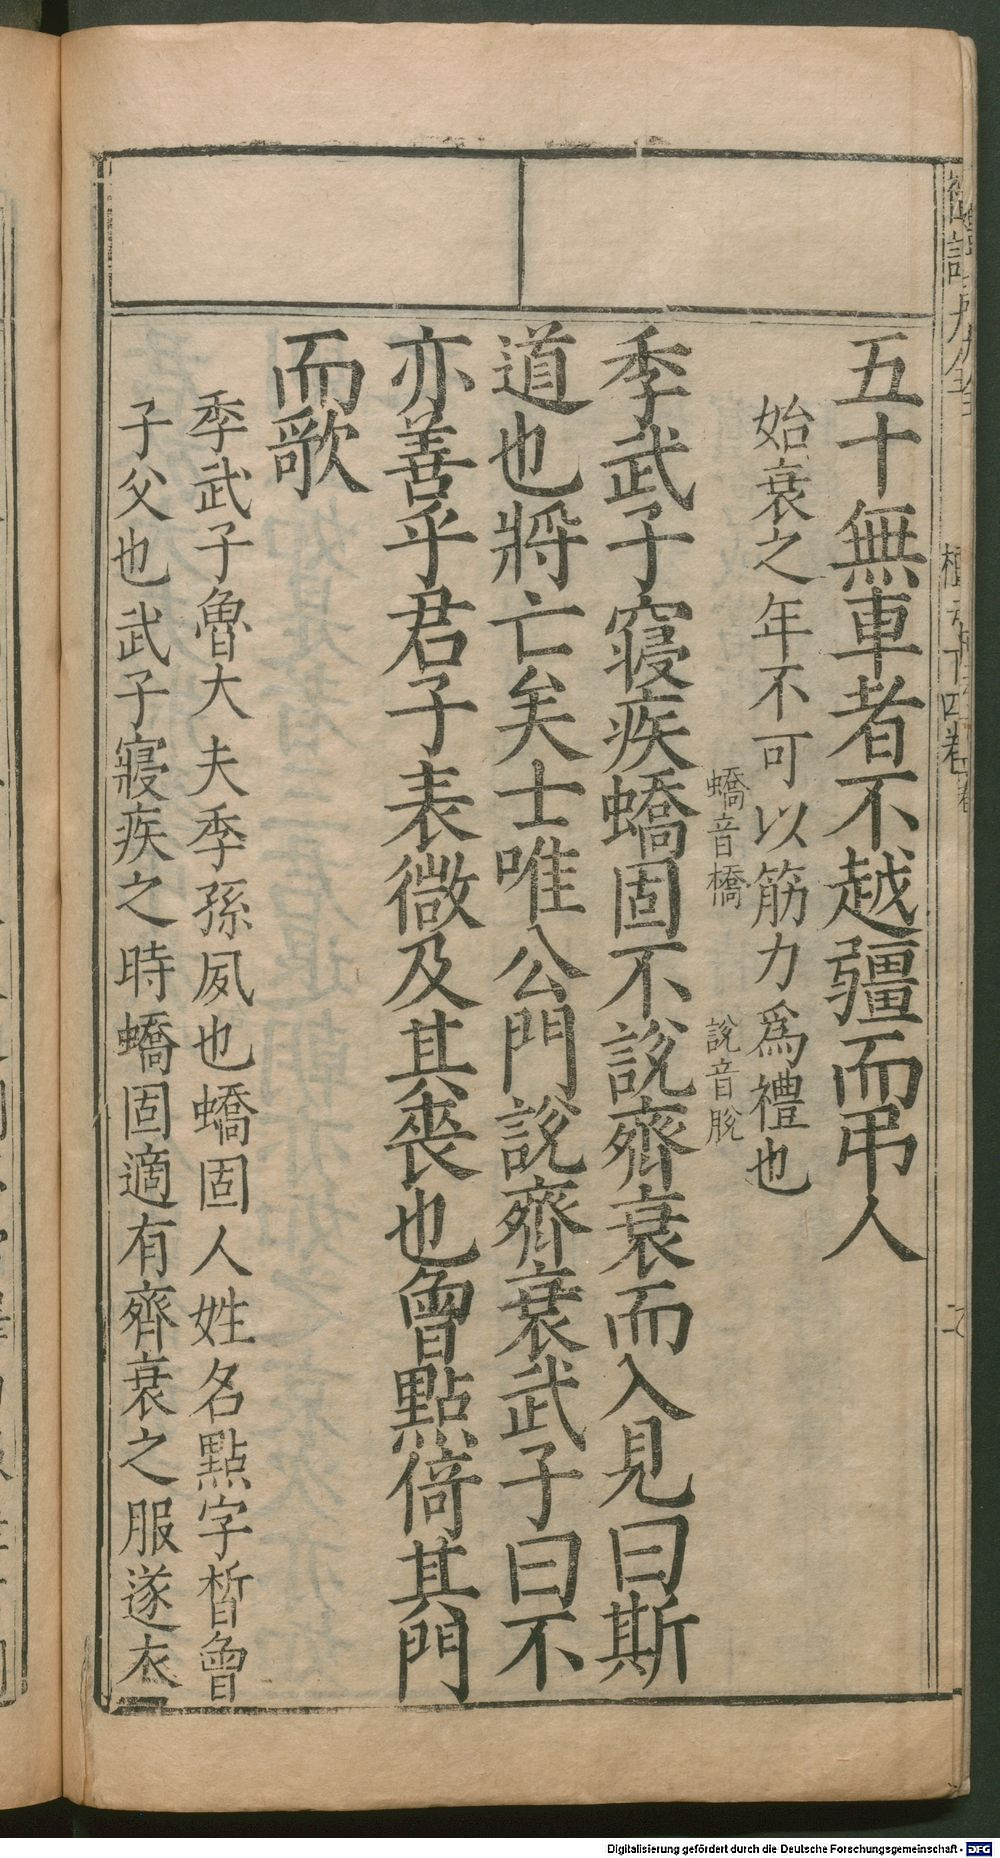 五十無車者不越疆而弔人
始衰之年不可以筋力爲禮也
蟜音橋 說音脫
季武子寢疾蟜固不說齊衰而入見曰斯
道也將亡矣士唯公門說齊衰武子曰不
亦善乎君子表微及其喪也曾點倚其門
而歌
季武子魯大夫季孫夙也蟜固人姓名點字晳曾
子父也武子寢疾之時蟜固適有齊衰之服遂衣
Digitalisierung gefördert durch die Deutsche Forschungsgemeinschaft - DFG